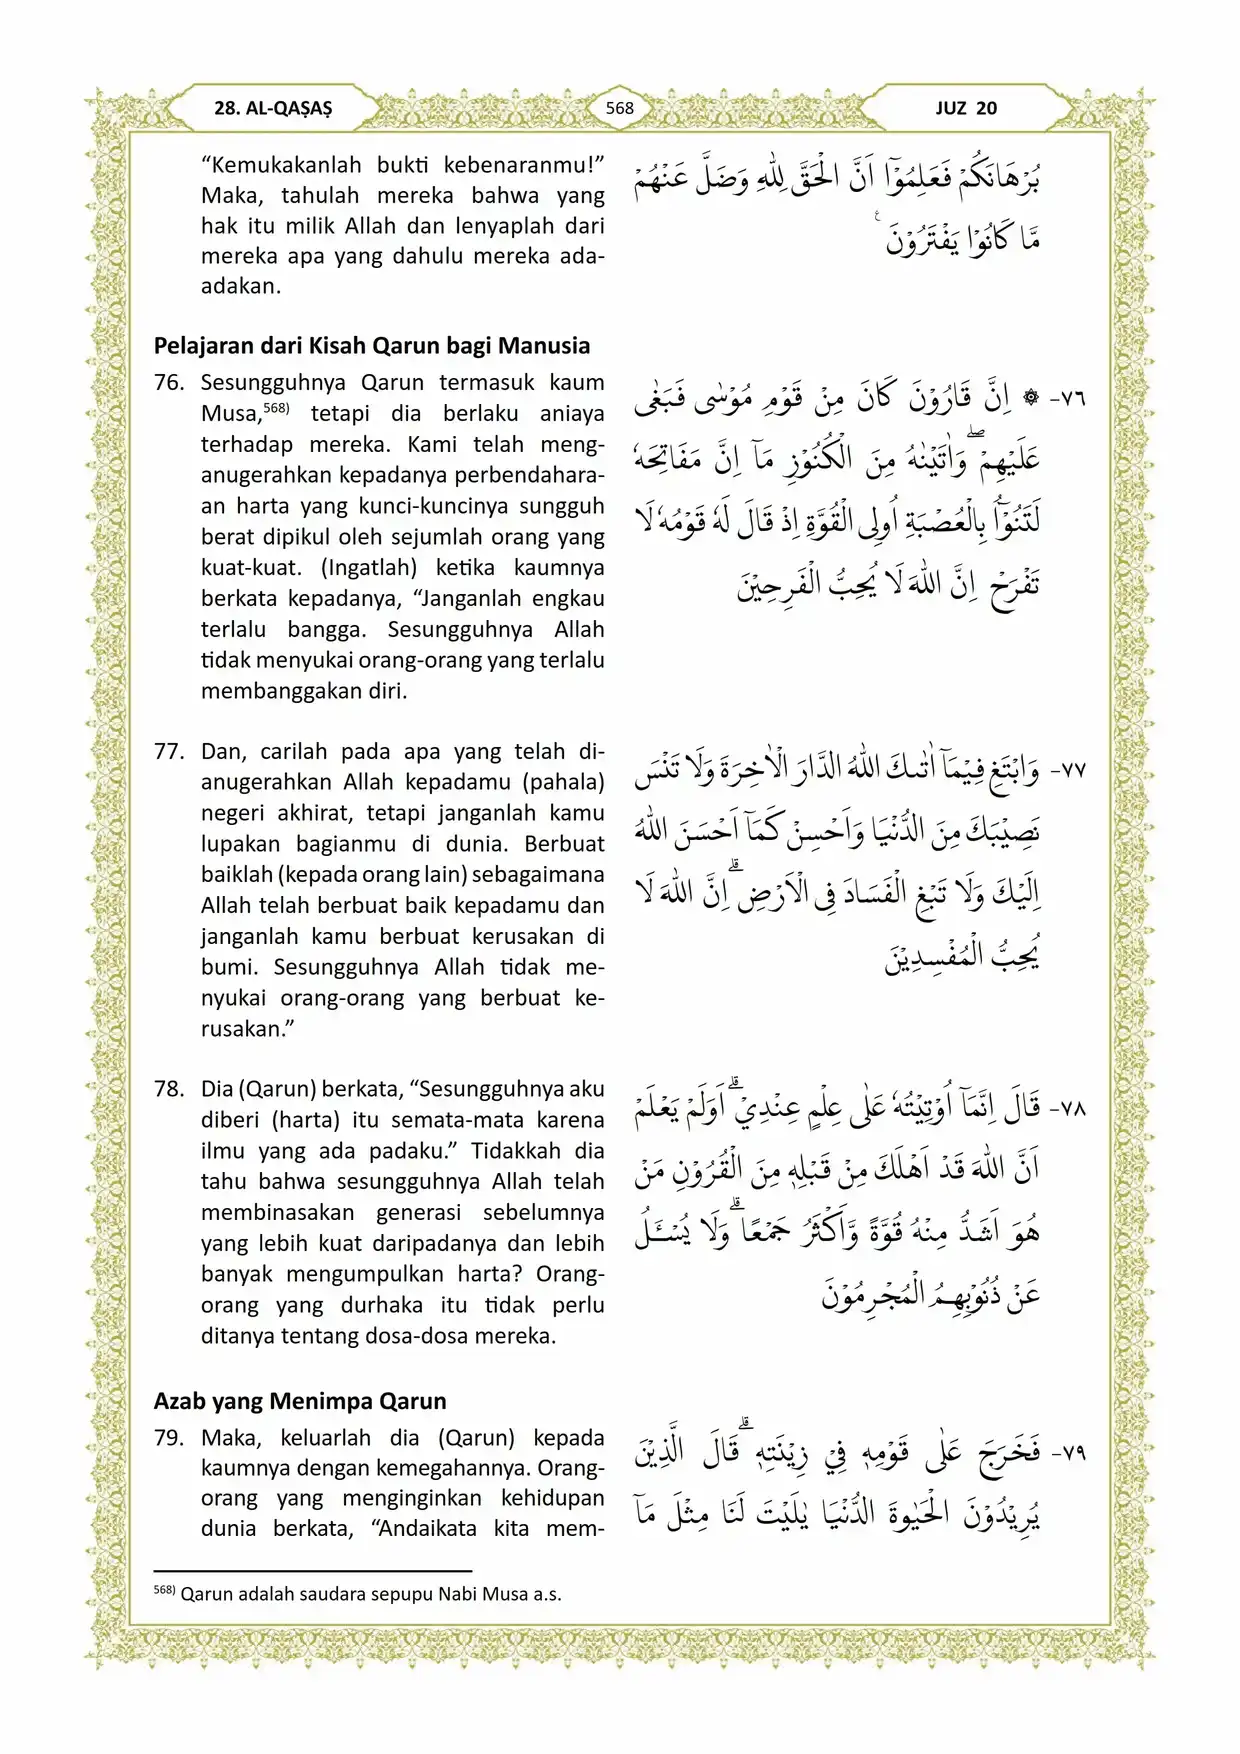 28. AL-QAṢAṢ
568
JUZ 20
“Kemukakanlah bukti kebenaranmu!”
Maka, tahulah mereka bahwa yang
hak itu milik Allah dan lenyaplah dari
mereka apa yang dahulu mereka ada-
adakan.
بُرْهَانَكُمْ فَعَلِمُوْٓا اَنَّ الْحَقَّ لِلّٰهِ وَضَلَّ عَنْهُمْ
مَّا كَانُوْا يَفْتَرُوْنَ ࣖ
Pelajaran dari Kisah Qarun bagi Manusia
76. Sesungguhnya Qarun termasuk kaum
Musa,568) tetapi dia berlaku aniaya
terhadap mereka. Kami telah meng-
anugerahkan kepadanya perbendahara-
an harta yang kunci-kuncinya sungguh
berat dipikul oleh sejumlah orang yang
kuat-kuat. (Ingatlah) ketika kaumnya
berkata kepadanya, “Janganlah engkau
terlalu bangga. Sesungguhnya Allah
tidak menyukai orang-orang yang terlalu
membanggakan diri.
٧٦- ۞ اِنَّ قَارُوْنَ كَانَ مِنْ قَوْمِ مُوْسٰى فَبَغٰى
عَلَيْهِمْ ۖوَاٰتَيْنٰهُ مِنَ الْكُنُوْزِ مَآ اِنَّ مَفَاتِحَهٗ
لَتَنُوْۤاُ بِالْعُصْبَةِ اُولِى الْقُوَّةِ اِذْ قَالَ لَهٗ قَوْمُهٗ لَا
تَفْرَحْ اِنَّ اللّٰهَ لَا يُحِبُّ الْفَرِحِيْنَ
77. Dan, carilah pada apa yang telah di-
anugerahkan Allah kepadamu (pahala)
negeri akhirat, tetapi janganlah kamu
lupakan bagianmu di dunia. Berbuat
baiklah (kepada orang lain) sebagaimana
Allah telah berbuat baik kepadamu dan
janganlah kamu berbuat kerusakan di
bumi. Sesungguhnya Allah tidak me-
nyukai orang-orang yang berbuat ke-
rusakan.”
٧٧- وَابْتَغِ فِيْمَآ اٰتٰىكَ اللّٰهُ الدَّارَ الْاٰخِرَةَ وَلَا تَنْسَ
نَصِيْبَكَ مِنَ الدُّنْيَا وَاَحْسِنْ كَمَآ اَحْسَنَ اللّٰهُ
اِلَيْكَ وَلَا تَبْغِ الْفَسَادَ فِى الْاَرْضِ ۗاِنَّ اللّٰهَ لَا
يُحِبُّ الْمُفْسِدِيْنَ
78. Dia (Qarun) berkata, “Sesungguhnya aku
diberi (harta) itu semata-mata karena
ilmu yang ada padaku.” Tidakkah dia
tahu bahwa sesungguhnya Allah telah
membinasakan generasi sebelumnya
yang lebih kuat daripadanya dan lebih
banyak mengumpulkan harta? Orang-
orang yang durhaka itu tidak perlu
ditanya tentang dosa-dosa mereka.
٧٨- قَالَ اِنَّمَآ اُوْتِيْتُهٗ عَلٰى عِلْمٍ عِنْدِيْۗ اَوَلَمْ يَعْلَمْ
اَنَّ اللّٰهَ قَدْ اَهْلَكَ مِنْ قَبْلِهٖ مِنَ الْقُرُوْنِ مَنْ
هُوَ اَشَدُّ مِنْهُ قُوَّةً وَّاَكْثَرُ جَمْعًا ۗوَلَا يُسْـَٔلُ
عَنْ ذُنُوْبِهِمُ الْمُجْرِمُوْنَ
Azab yang Menimpa Qarun
79. Maka, keluarlah dia (Qarun) kepada
kaumnya dengan kemegahannya. Orang-
orang yang menginginkan kehidupan
dunia berkata, “Andaikata kita mem-
٧٩- فَخَرَجَ عَلٰى قَوْمِهٖ فِيْ زِيْنَتِهٖ ۗقَالَ الَّذِيْنَ
يُرِيْدُوْنَ الْحَيٰوةَ الدُّنْيَا يٰلَيْتَ لَنَا مِثْلَ مَآ
568) Qarun adalah saudara sepupu Nabi Musa a.s.